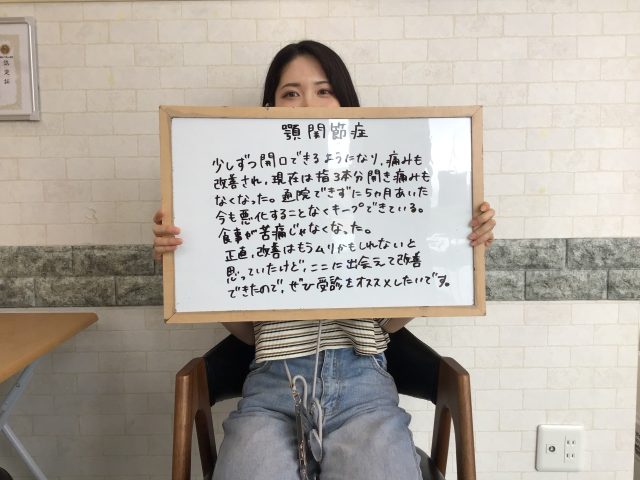 顎関節症
少しずつ開口できるようになり、痛みも
改善され、現在は指3本分開き痛みも
なくなった。通院できずに5ヶ月あいた
今も悪化することなくキープできている。
食事が苦痛じゃなくなった。
正直、改善はもうムリかもしれないと
思っていたけど、ここに出会えて改善
できたので、ぜひ受診をオススメしたいです。
認定証